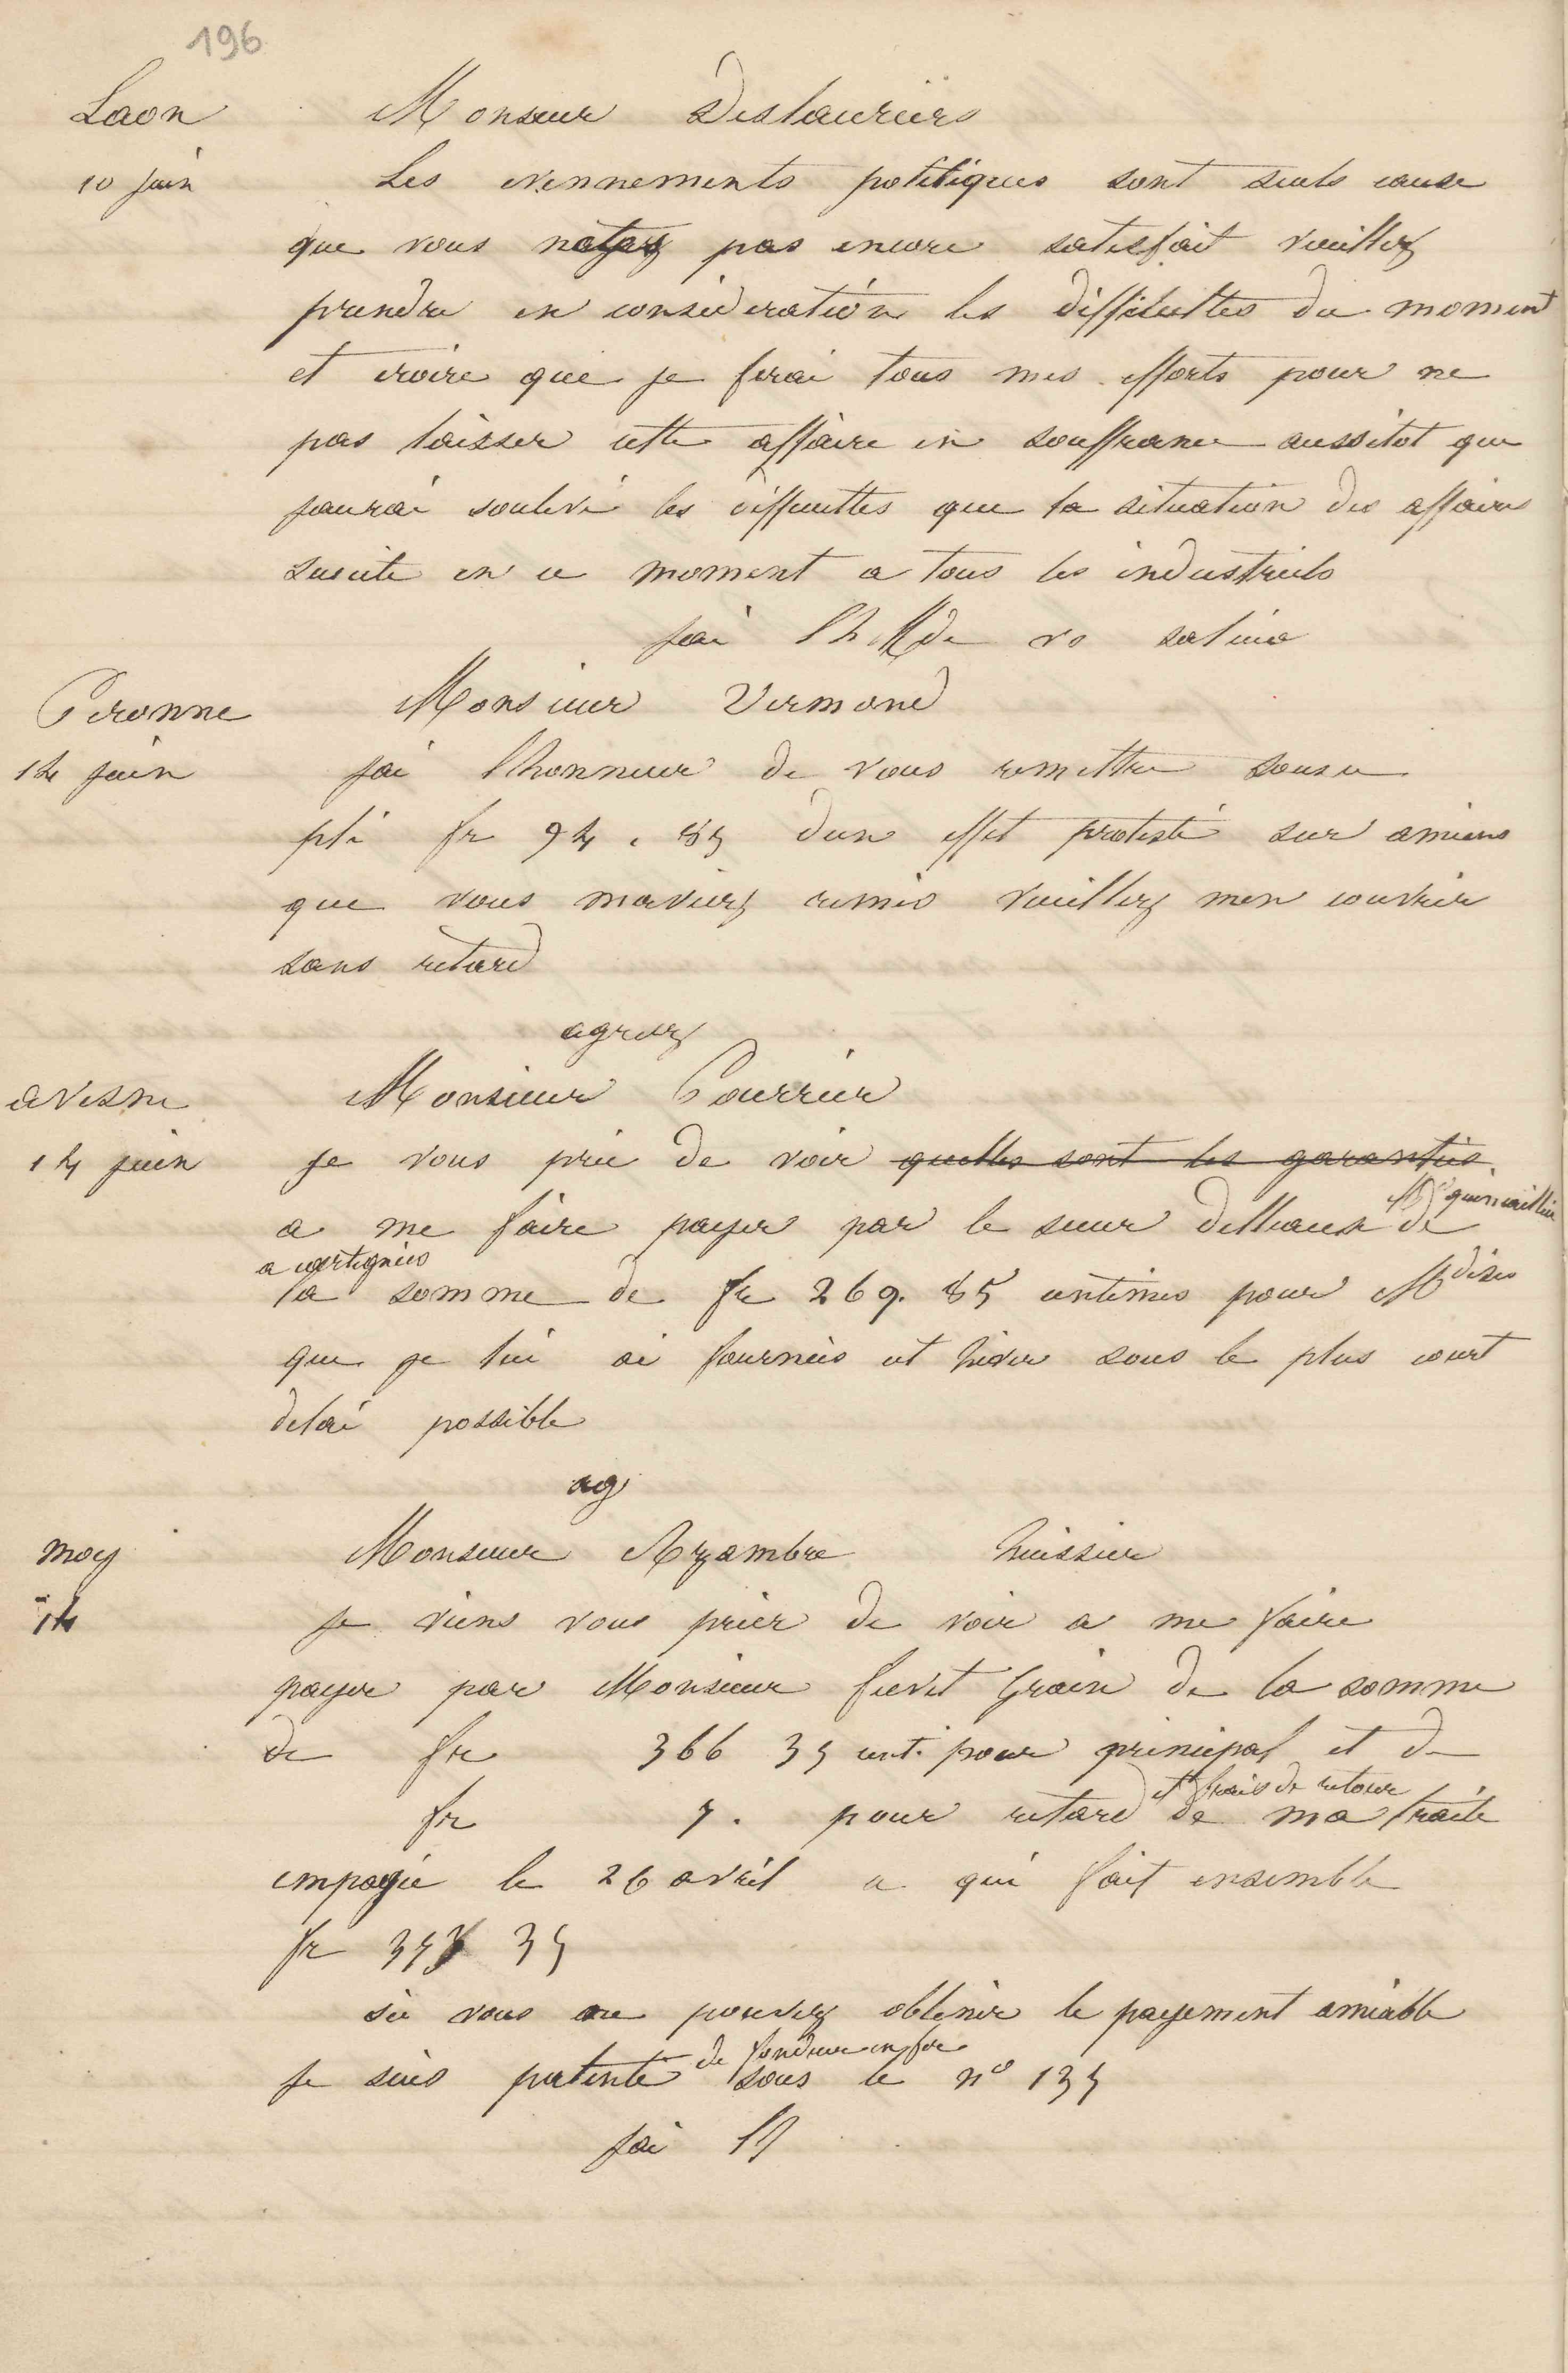 196
Laon
Monsieur Deslauriers
10 juin
Les evennements politiques sont seuls cause
que vous pas encore satisfait veuillez
prendre en consideration les difficultes du moment
et croire que je ferai tous mes efforts pour ne
pas laisser cette affaire en souffrance aussitot que
jaurai soulevé les difficultes que la situation des affaires
suscite en ce moment a tous les industriels
jai lh de vs salue
Peronne
Monsieur Vermond
14 juin
jai lhonneur de vous remettre sous ce
pli fr 94.85 dun effet protesté sur amiens
que vous maviez remis veuillez men couvrir
sans retard
agreez
avesne
Monsieur Pourrier
14 juin
je vous prie de voir quelles sont les garanties
a me faire payer par le sieur delleaux Md quincaillier de
a cartignies
la somme de fr 269. 85 centimes pour Mdises
que je lui ai fournies cet hiver sous le plus court
delai possible
ag
moy
Monsieur Azambre huissier
14
je viens vous prier de voir a me faire
payer par Monsieur fievet Grain de la somme
de fr 366 35 cent. pour principal et de
fr 7. pour retard et frais de retour de ma traite
impayée le 26 avril ce qui fait ensemble
fr 373 35
si vous ne pouvez obtenir le payement amiable
je suis patenté de fondeur en fer sous le n° 135
jai lh